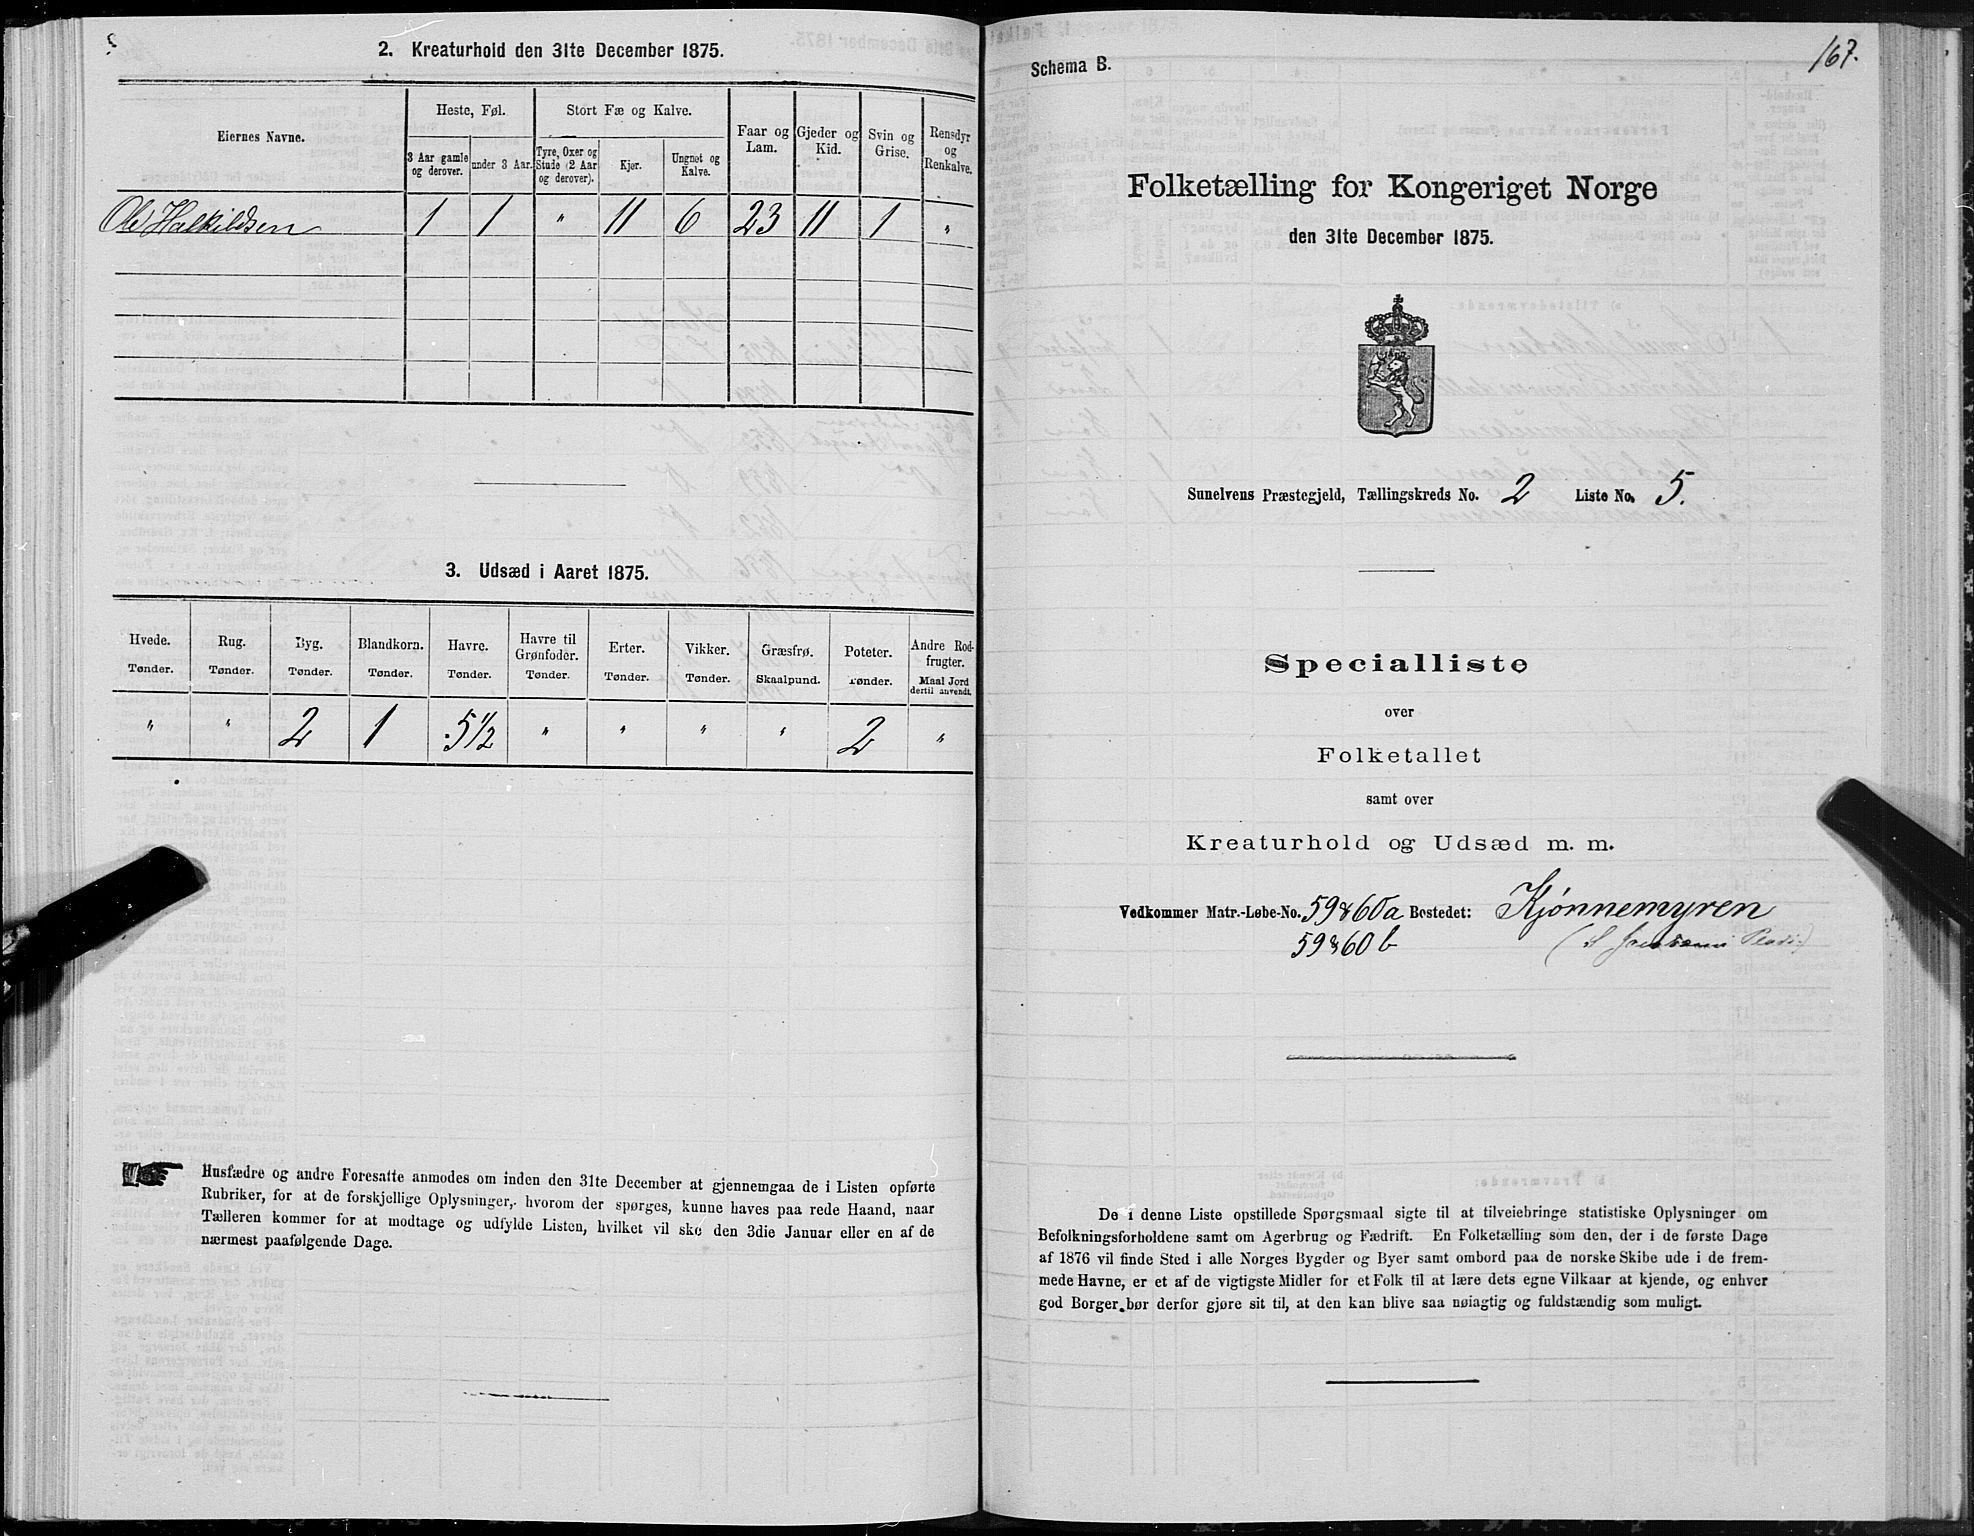 2. Kreaturhold den 31te December 1875.
Eiernes Navne.
Heste, Føl.
3 Aar gamle og derover.
under 3 Aar.
Stort Fæ og Kalve.
Tyre, Oxer og Stude (2 Aar og derover).
Kjør.
Ungnet og Kalve.
Faar og Lam.
Gjeder og Kid.
Svin og Grise.
Rensdyr og Renkalve.
Ole Halkildsen 1 1 " 11 6 23 11 1 "
3. Udsæd i Aaret 1875.
Hvede. Rug. Byg. Blandkorn. Havre. Havre til Grønfoder. Erter. Vikker. Græsfrø. Poteter. Andre Rodfrugter.
Tønder. Tønder. Tønder. Tønder. Tønder. Tønder. Tønder. Tønder. Skaalpund. Tønder. Maal Jord dertil anvendt.
" " 2 1 5 1/2 " " " " 2 "
Husfædre og andre Foresatte anmodes om inden den 31te December at gjennemgaa de i Listen opførte
Rubriker, for at de forskjellige Oplysninger, hvorom der spørges, kunne haves paa rede Haand, naar
Tælleren kommer for at modtage og udfylde Listen, hvilket vil ske den 3die Januar eller en af de
nærmest paafølgende Dage.
167.
Schema B.
Folketælling for Kongeriget Norge
den 31te December 1875.
Sunelvens Præstegjeld, Tællingskreds No. 2 Liste No. 5.
Specialliste
over
Folketallet
samt over
Kreaturhold og Udsæd m. m.
Vedkommer Matr.-Løbe-No. 59&60a Bostedet: Kjønnemyren
59&60b
De i denne Liste opstillede Spørgsmaal sigte til at tilveiebringe statistiske Oplysninger om
Befolkningsforholdene samt om Agerbrug og Fædrift. En Folketælling som den, der i de første Dage
af 1876 vil finde Sted i alle Norges Bygder og Byer samt ombord paa de norske Skibe ude i de frem-
mede Havne, er et af de vigtigste Midler for et Folk til at lære dets egne Vilkaar at kjende, og enhver
god Borger bør derfor gjøre sit til, at den kan blive saa nøiagtig og fuldstændig som muligt.